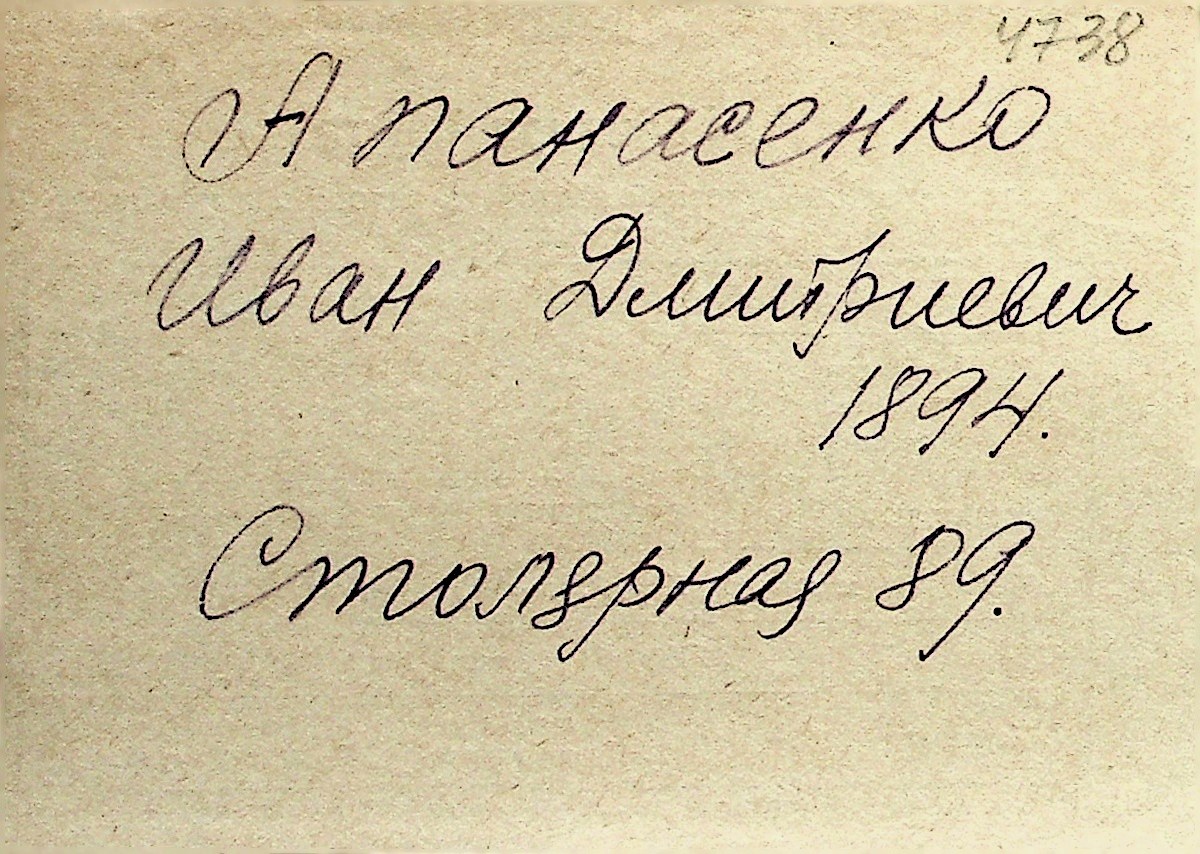 4738
Апанасенко
Иван Дмитриевич
1894.
Столярная 89.